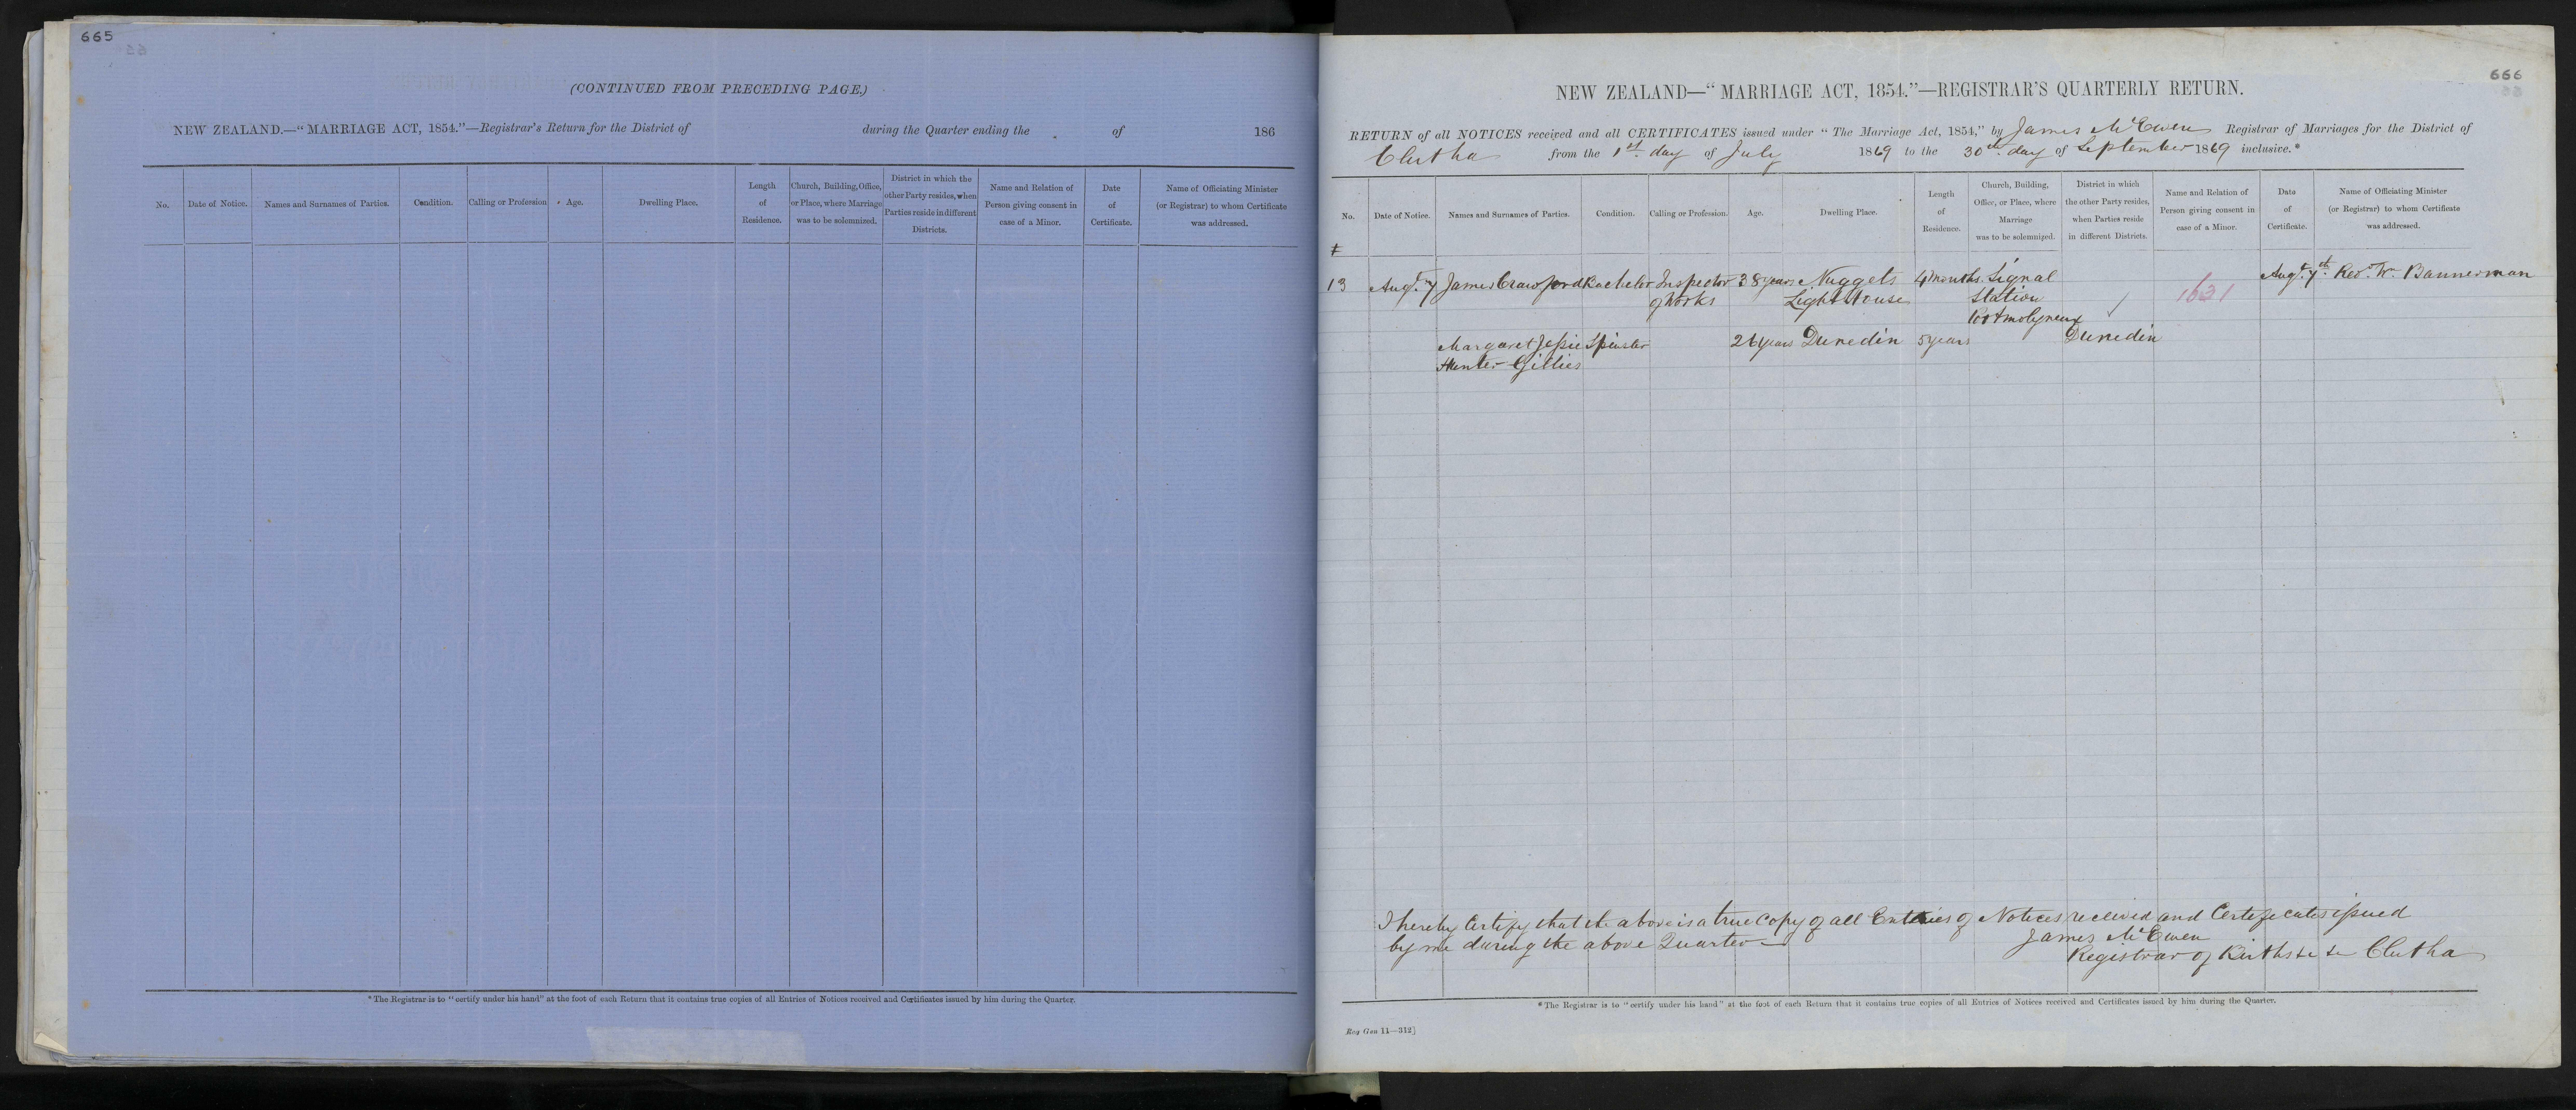 665
(CONTINUED FROM PRECEDING PAGE.)
NEW ZEALAND.—"MARRIAGE ACT, 1854."—Registrar's Return for the District of during the Quarter ending the of 186
No. Date of Notice. Names and Surnames of Parties. Condition. Calling or Profession Age. Dwelling Place. Length of Residence. Church, Building, Office, or Place, where Marriage was to be solemnized. District in which the other Party resides, when Parties reside in different Districts. Name and Relation of Person giving consent in case of a Minor. Date of Certificate. Name of Officiating Minister (or Registrar) to whom Certificate was addressed.
*The Registrar is to "certify under his hand" at the foot of each Return that it contains true copies of all Entries of Notices received and Certificates issued by him during the Quarter.
666
NEW ZEALAND—"MARRIAGE ACT, 1854."—REGISTRAR'S QUARTERLY RETURN.
RETURN of all NOTICES received and all CERTIFICATES issued under "The Marriage Act, 1854," by James McEwen Registrar of Marriages for the District of
Clutha from the 1st day of July 1869 to the 30th day of September 1869 inclusive.*
No. Date of Notice. Names and Surnames of Parties. Condition. Calling or Profession. Age. Dwelling Place. Length of Residence. Church, Building, Office, or Place, where Marriage was to be solemnized. District in which the other Party resides, when Parties reside in different Districts. Name and Relation of Person giving consent in case of a Minor. Date of Certificate. Name of Officiating Minister (or Registrar) to whom Certificate was addressed.
13 Augt. 7 James Crawford Bachelor Inspector 38 years Nuggets 4 months Signal Augt. 7th Revd. Wm Bannerman
of Works Light House Station 1631
Port molyneux
Margaret Jessie Spinster 26 years Dunedin 5 years Dunedin
Hunter Gillies
I hereby Certify that the above is a true Copy of all Entries of Notices received and Certificates issued
by me during the above Quarter—
James McEwen
Registrar of Births &c &c Clutha
*The Registrar is to "certify under his hand" at the foot of each Return that it contains true copies of all Entries of Notices received and Certificates issued by him during the Quarter.
Reg Gen 11—312]